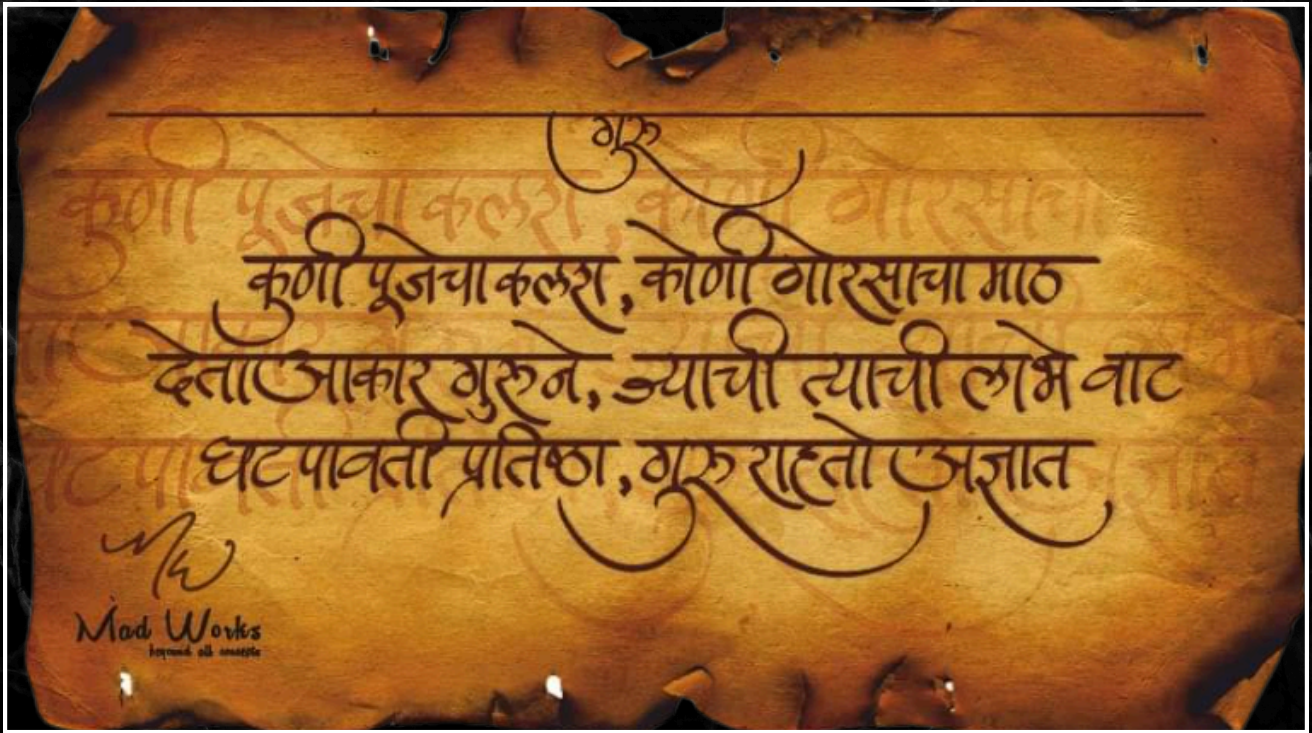 गुरु
कुणी पूजेचा कलश, कोणी गोरसाचा माठ
देता आकार गुरुने, ज्याची त्याची लाभे वाट
घट पावती प्रतिष्ठा, गुरु राहतो अज्ञात
Mad Works